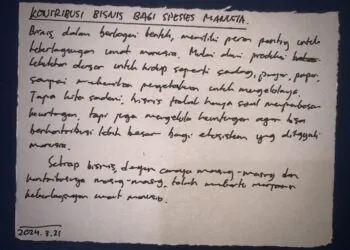 KONTRIBUSI BISNIS BAGI SPESIES MANUSIA.
Bisnis, dalam berbagai bentuk, memiliki peran penting untuk
keberlangsungan umat manusia. Mulai dari produksi
kebutuhan dasar untuk hidup seperti sandang, pangan, papan,
sampai memberikan pengetahuan untuk mengelolanya.
Tanpa kita sadari, bisnis tidak hanya soal
keuntungan, tapi juga mengelola keuntungan agar bisa
berkontribusi lebih besar bagi ekosistem yang ditinggali
manusia.
Setiap bisnis, dengan caranya masing-masing dan
kontribusinya masing-masing, telah membantu
keberlangsungan umat manusia.
2024.3.21